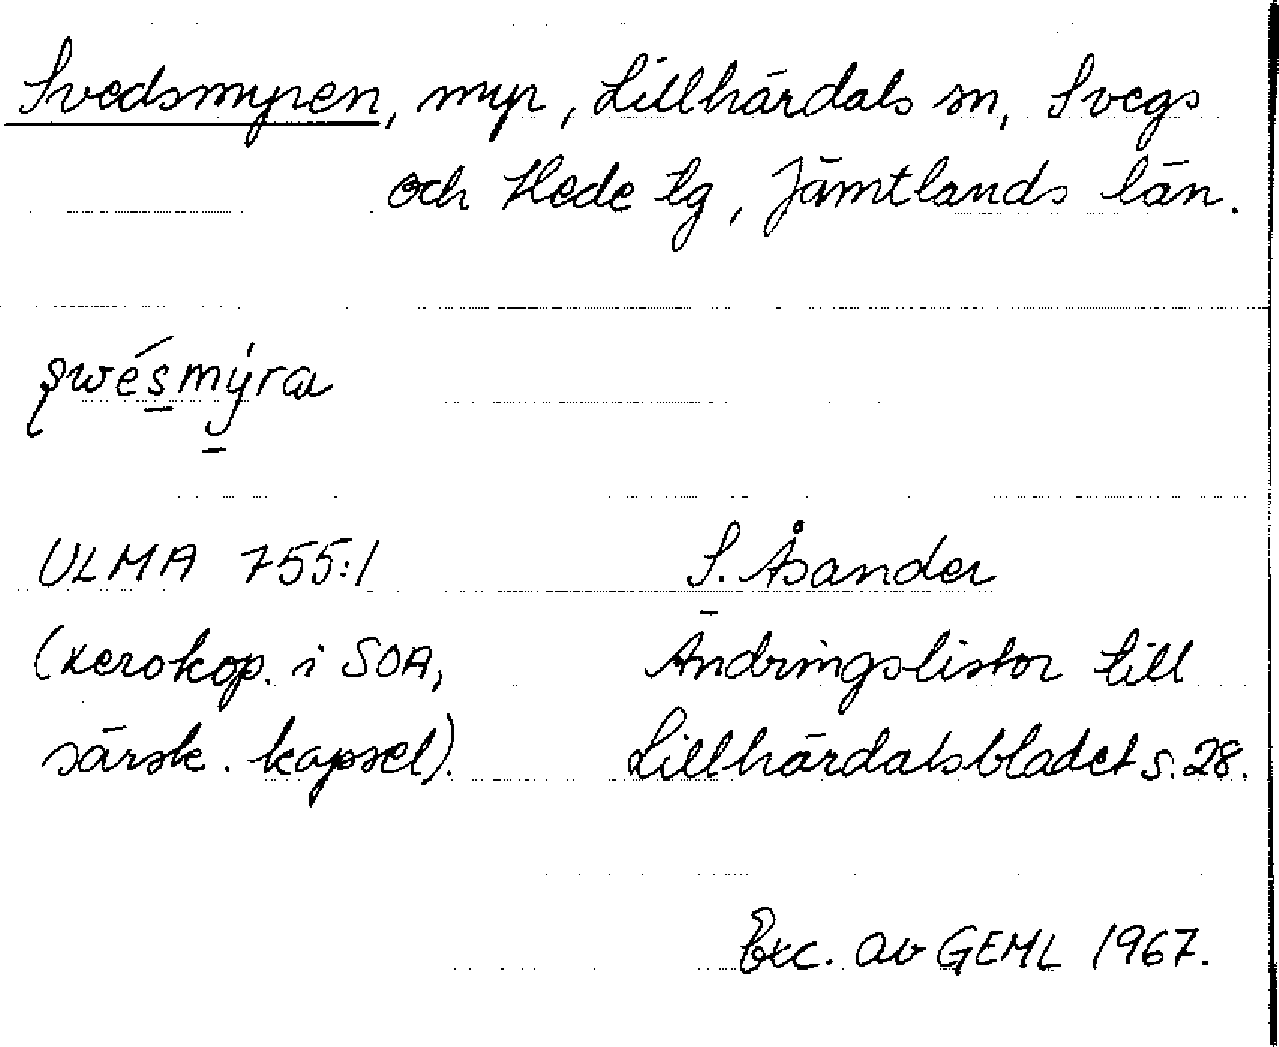 Svedsmyren, myr, Lillhärdals sn, Svegs
och Hede tg, Jämtlands län.
swésmýra
ULMA 755:1 S. Åsander
(xerokop. i SOA, Ändringslistor till
särsk. kapsel). Lillhärdalsbladet s. 28.
Exc. av GEML 1967.